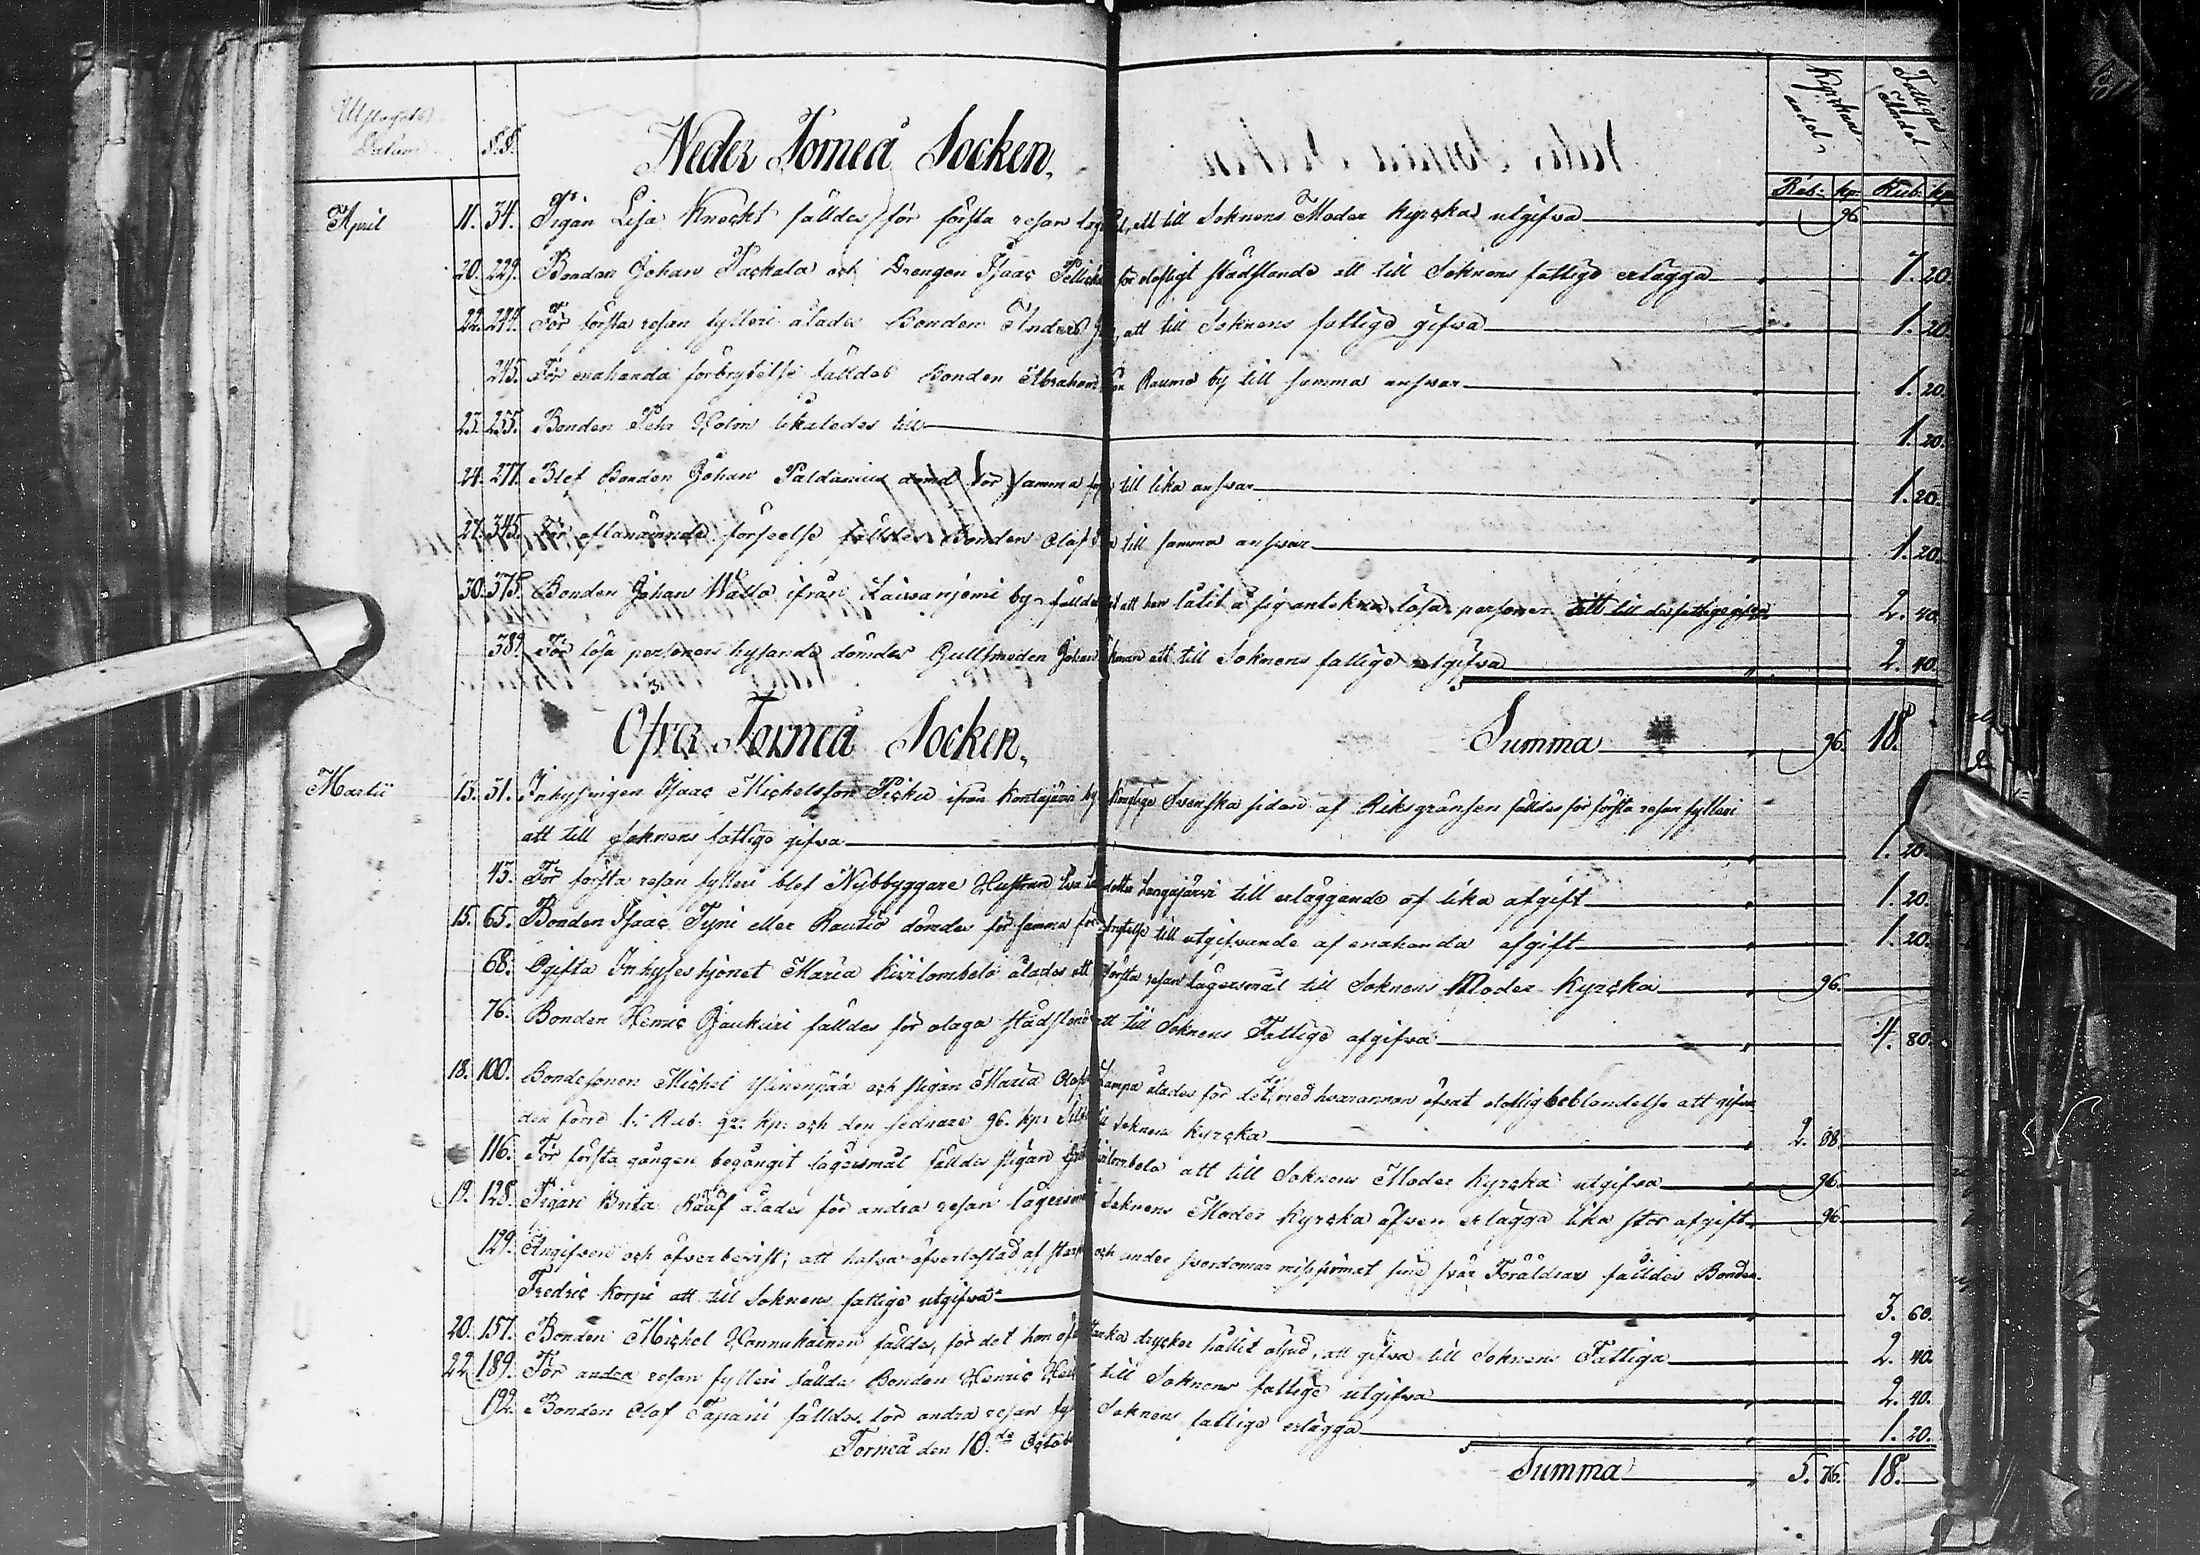 Utslagets Datum. §.§. Kyrkans andel Fattigas Andel
Neder Torneå Socken.
Rub: kp: Rub: kp:
April 11. 34. Pigan Lisa Knecht fälldes för första resan att till Soknens Moder Kyrcka utgifva " 96
20. 229. Bonden Johan Packala och Drengen Isaac för olofligt städslande att till Soknens fattige erlägga " 7. 20.
22. 244. För första resan fylleri ålades Bonden Anders att till Soknens fattige gifva " 1. 20.
245. För enahanda förbrytelse fälldes Bonden Abraham Raumo by till samma answar " 1. 20.
23. 255. Bonden Pehr Holm likaledes till " 1. 20.
24. 277. Blef Bonden Johan Paldanius dömd för samma till lika answar " 1. 20.
27. 345. För oftanämnde förseelse fälldes Bonden Olof till samma answar " 1. 20.
30. 375. Bonden Johan Wallo ifrån Laivaniemi by fälldes att han låtit å sig antekna lösa personer att till des fattige gifva 2. 40.
389. För lösa personers hysande dömdes Gullsmeden Johan att till Soknens fattige utgifva " 2. 40.
Öfver Torneå Socken. Summa " 96. 18.
Martii 13. 31. Inhysingen Isaac Michelsson Picku ifrån Kontajärvi by Kongliga Svenska sidan af Riksgränsen fälldes för första resan fylleri
att till Soknens fattige gifva " 1. 20.
43. För första resan fylleri blef Nybbyggare Hustrun Eva Langajärvi till erläggande af lika afgift " 1. 20.
15. 65. Bonden Isaac Tyni eller Rautio dömdes för samma förbrytelse till utgifvande af enahanda afgift " 1. 20.
68. Ogifta Inhyseshjonet Maria Kivilombolo ålades att första resan lägersmål till Soknens Moder Kyrcka " 96.
76. Bonden Henric Gjaukuri fälldes för olaga städsland att till Soknens Fattige afgifva " 4. 80.
18. 100. Bondesonen Michel och pigan Maria Olofs Lampa ålades för det de med hvarannan öfvat olofligbeblandelse att gifva
den förre 1: Rub: 92: kp: och den sednare 96. kp: Silf till Soknens Kyrcka " 2. 88.
116. För första gången begångit lägersmål fälldes pigan att till Soknens Moder Kyrcka utgifva " 96.
19. 128. Pigan Brita Rååf ålades för andra resan lägersmål Soknens Moder Kyrcka äfven erlägga lika stor afgift " 96.
129. Angifven och öfverbevist, att hafva öfverlastad af starka och under svordomar missfirmat sine svär Föräldrar fälldes Bonden
Fredric Korpi att till Soknens fattige utgifva " 3. 60.
20. 157. Bonden Michel Hannukainen fälldes, för det han af starka drycker hållit oljud, att gifva till Soknens Fattiga 2. 40.
22. 189. För andra resan fylleri fälldes Bonden Henric till Soknens fattige utgifva " 2. 40.
192. Bonden Olof Tapani fälldes för andra resan Soknens fattige erlägga " 1. 20.
Torneå den 10.de Octob Summa " 5. 76. 18.